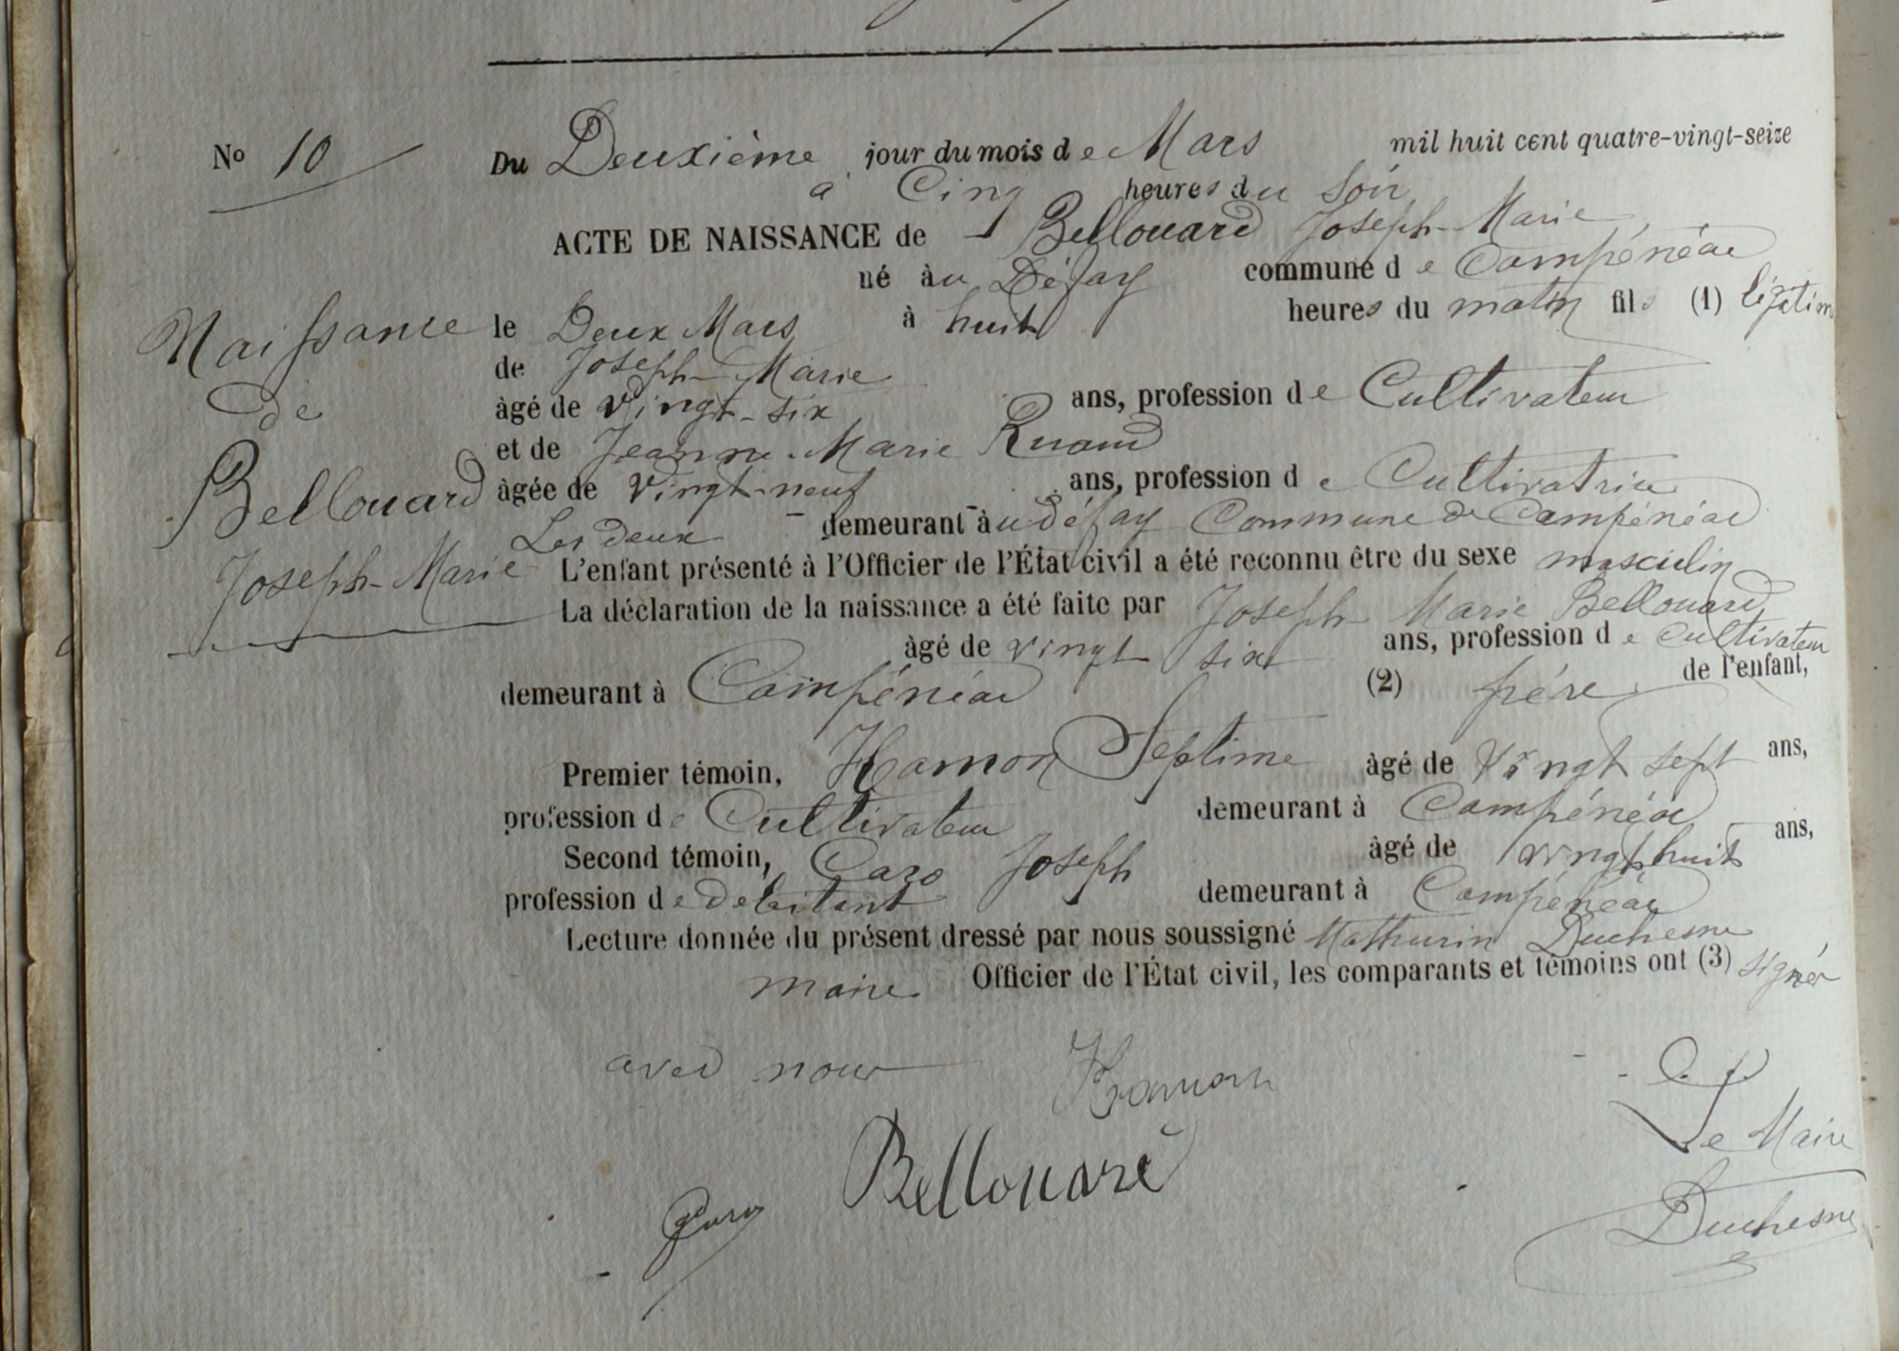 No 10
Du Deuxième jour du mois de Mars mil huit cent quatre-vingt-seize
à Cinq heures du Soir
ACTE DE NAISSANCE de Bellouard Joseph-Marie
né àu Défay commune de Campénéac
Naissance
de
Bellouard
Joseph-Marie
le Deux Mars à huit heures du matin fils (1) légitime
de Joseph-Marie
àgé de vingt-six ans, profession de Cultivateur
et de Jeanne-Marie Ruaud
àgée de vingt-neuf ans, profession de Cultivatrice
Les deux demeurant àu défay Commune de Campénéac
L'enfant présenté à l'Officier de l'État civil a été reconnu être du sexe masculin
La déclaration de la naissance a été faite par Joseph-Marie Bellouard
àgé de vingt six ans, profession de Cultivateur
demeurant à Campénéac (2) père de l'enfant,
Premier témoin, Hamon Septime àgé de vingt sept ans,
profession de Cultivateur demeurant à Campénéac
Second témoin, Caro Joseph àgé de vingt huit ans,
profession de debitant demeurant à Campénéac
Lecture donnée du présent dressé par nous soussigné Mathurin Duchesne
maire Officier de l'État civil, les comparants et témoins ont (3) signé
avec nous
Hamon
Le Maire
Bellouard
Caro
Duchesne